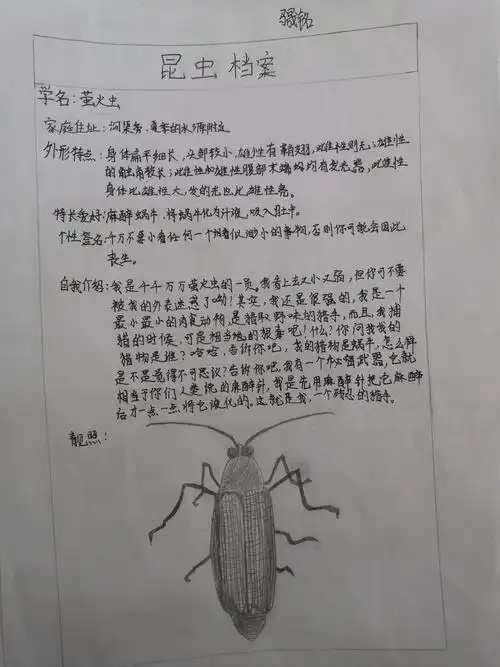 骐铭
昆虫档案
学名：萤火虫
家庭住址：沟渠旁、草旁的水源附近
外形特点：身体扁平细长，头部较小，雄性有鞘翅，雌性则无；雄性
的触角较长；雌性和雄性腹部末端均有发光器，雌性
身体比雄性大，发的光也比雄性亮。
特长爱好：麻醉蜗牛、将蜗牛化为汁液，吸入肚中。
个性签名：千万不要小看任何一个看似渺小的事物，否则你可能会因此
丧生。
自我介绍：我是千千万万萤火虫的一员。我看上去又小又弱，但你可不要
被我的外表迷惑了呦！其实，我还是很强的，我是一个
最小最小的肉食动物，是猎取野味的猎手，而且，我捕
猎的时候，可是相当地的狠毒呢！什么？你问我我的
猎物是谁？哈哈，告诉你吧，我的猎物是蜗牛，怎么样
是不是觉得不可思议？告诉你吧，我有一个秘密武器，它就
相当于你们人类说的麻醉针，我是先用麻醉针把它麻醉
后才一点一点将它液化的。这就是我，一个残忍的猎手。
靓照：